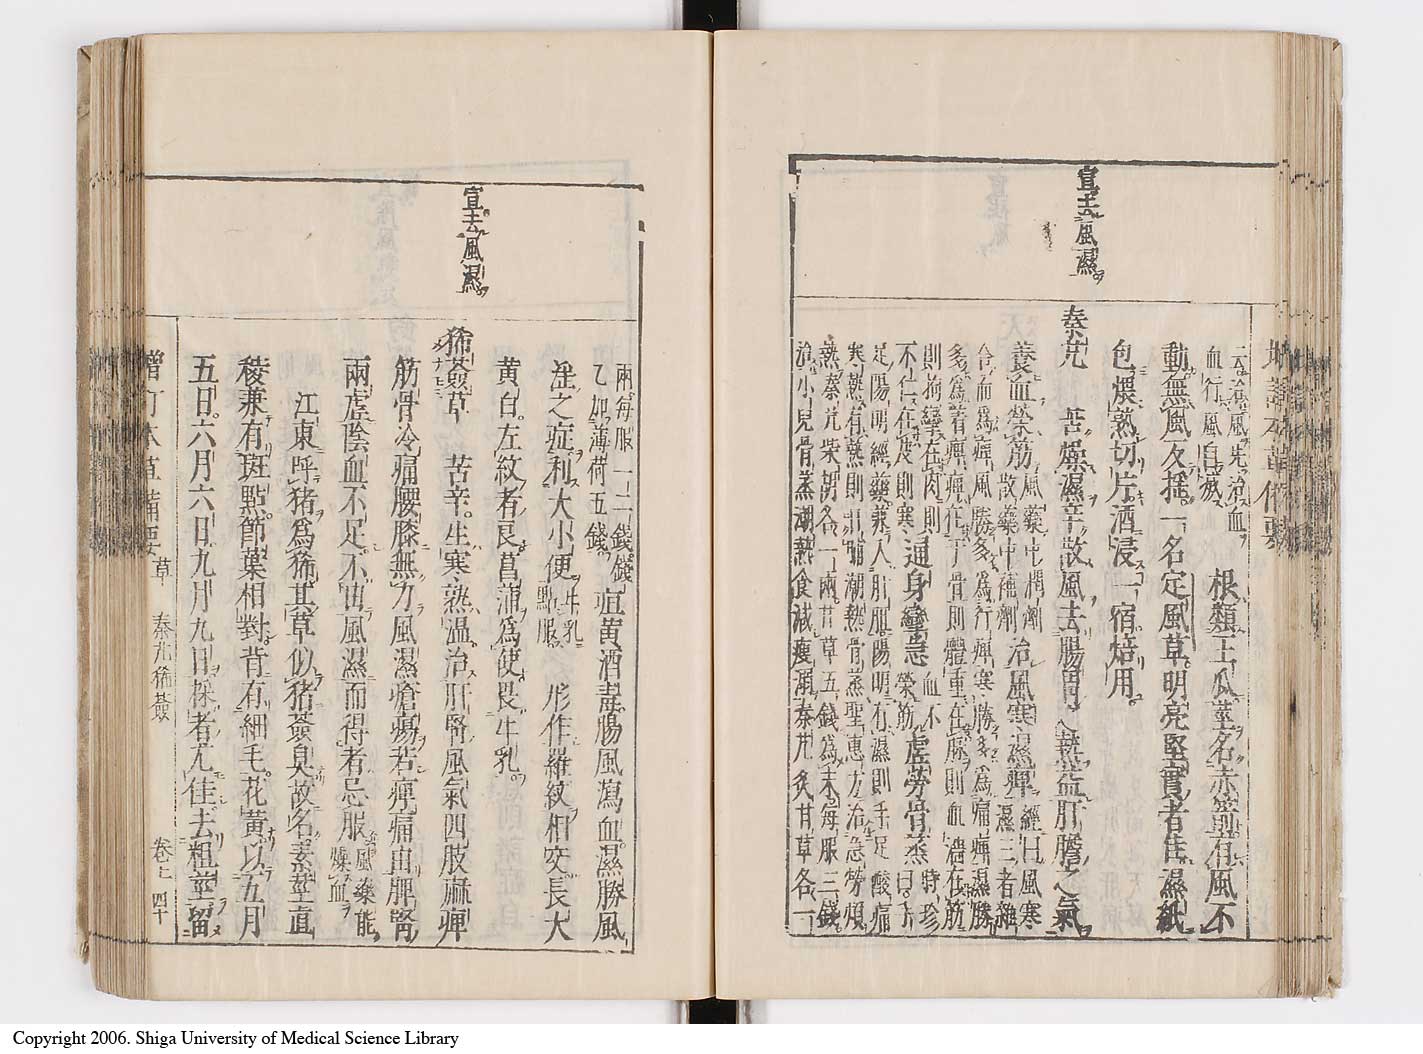 宣去風濕
云治風先治血
血行風自滅
根類王瓜莖名赤箭有風不
動無風反搖一名定風草明亮堅實者佳濕紙
包煨熟切片酒浸一宿焙用
秦艽 苦燥濕辛散風去腸胃之熱益肝膽之氣
養血榮筋
風藥中潤劑
散藥中補劑
治風寒濕痺
經曰風寒
濕三者雜
合而爲痺風勝多爲行痺寒勝多爲痛痺濕勝
多爲着痺痺在于骨則體重在脉則血濇在筋
則拘攣在肉則
不仁在皮則寒
通身攣急
血不
榮筋
虛勞骨蒸
時珍
曰手
足陽明經藥兼入肝胆陽明有濕則手足酸痛
寒熱有熱則日晡潮熱骨蒸聖惠方治急勞煩
熱秦艽柴胡各一兩甘草五錢爲末每服三錢
治小兒骨蒸潮熱食減瘦弱秦艽炙甘草各一
宣去風濕
兩每服一二錢錢
乙加薄荷五錢
疸黄酒毒腸風瀉血濕勝風
淫之症利大小便
牛乳
點服
形作羅紋相交長大
黄白左紋者良菖蒲爲使畏牛乳
豨薟草 苦辛生寒熟温治肝腎風氣四肢麻痺
筋骨冷痛腰膝無力風濕瘡瘍若痺痛由脾腎
兩虛陰血不足不由風濕而得者忌服
風藥能
燥血
江東呼猪爲豨其草似猪薟臭故名素莖直
稜兼有斑點節葉相對背有細毛花黄以五月
五日六月六日九月九日採者尤佳去粗莖留
增訂本草備要 草 秦艽豨薟 卷之 四十